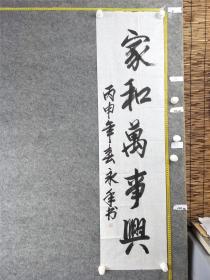 家和萬事興
丙申年春永年书